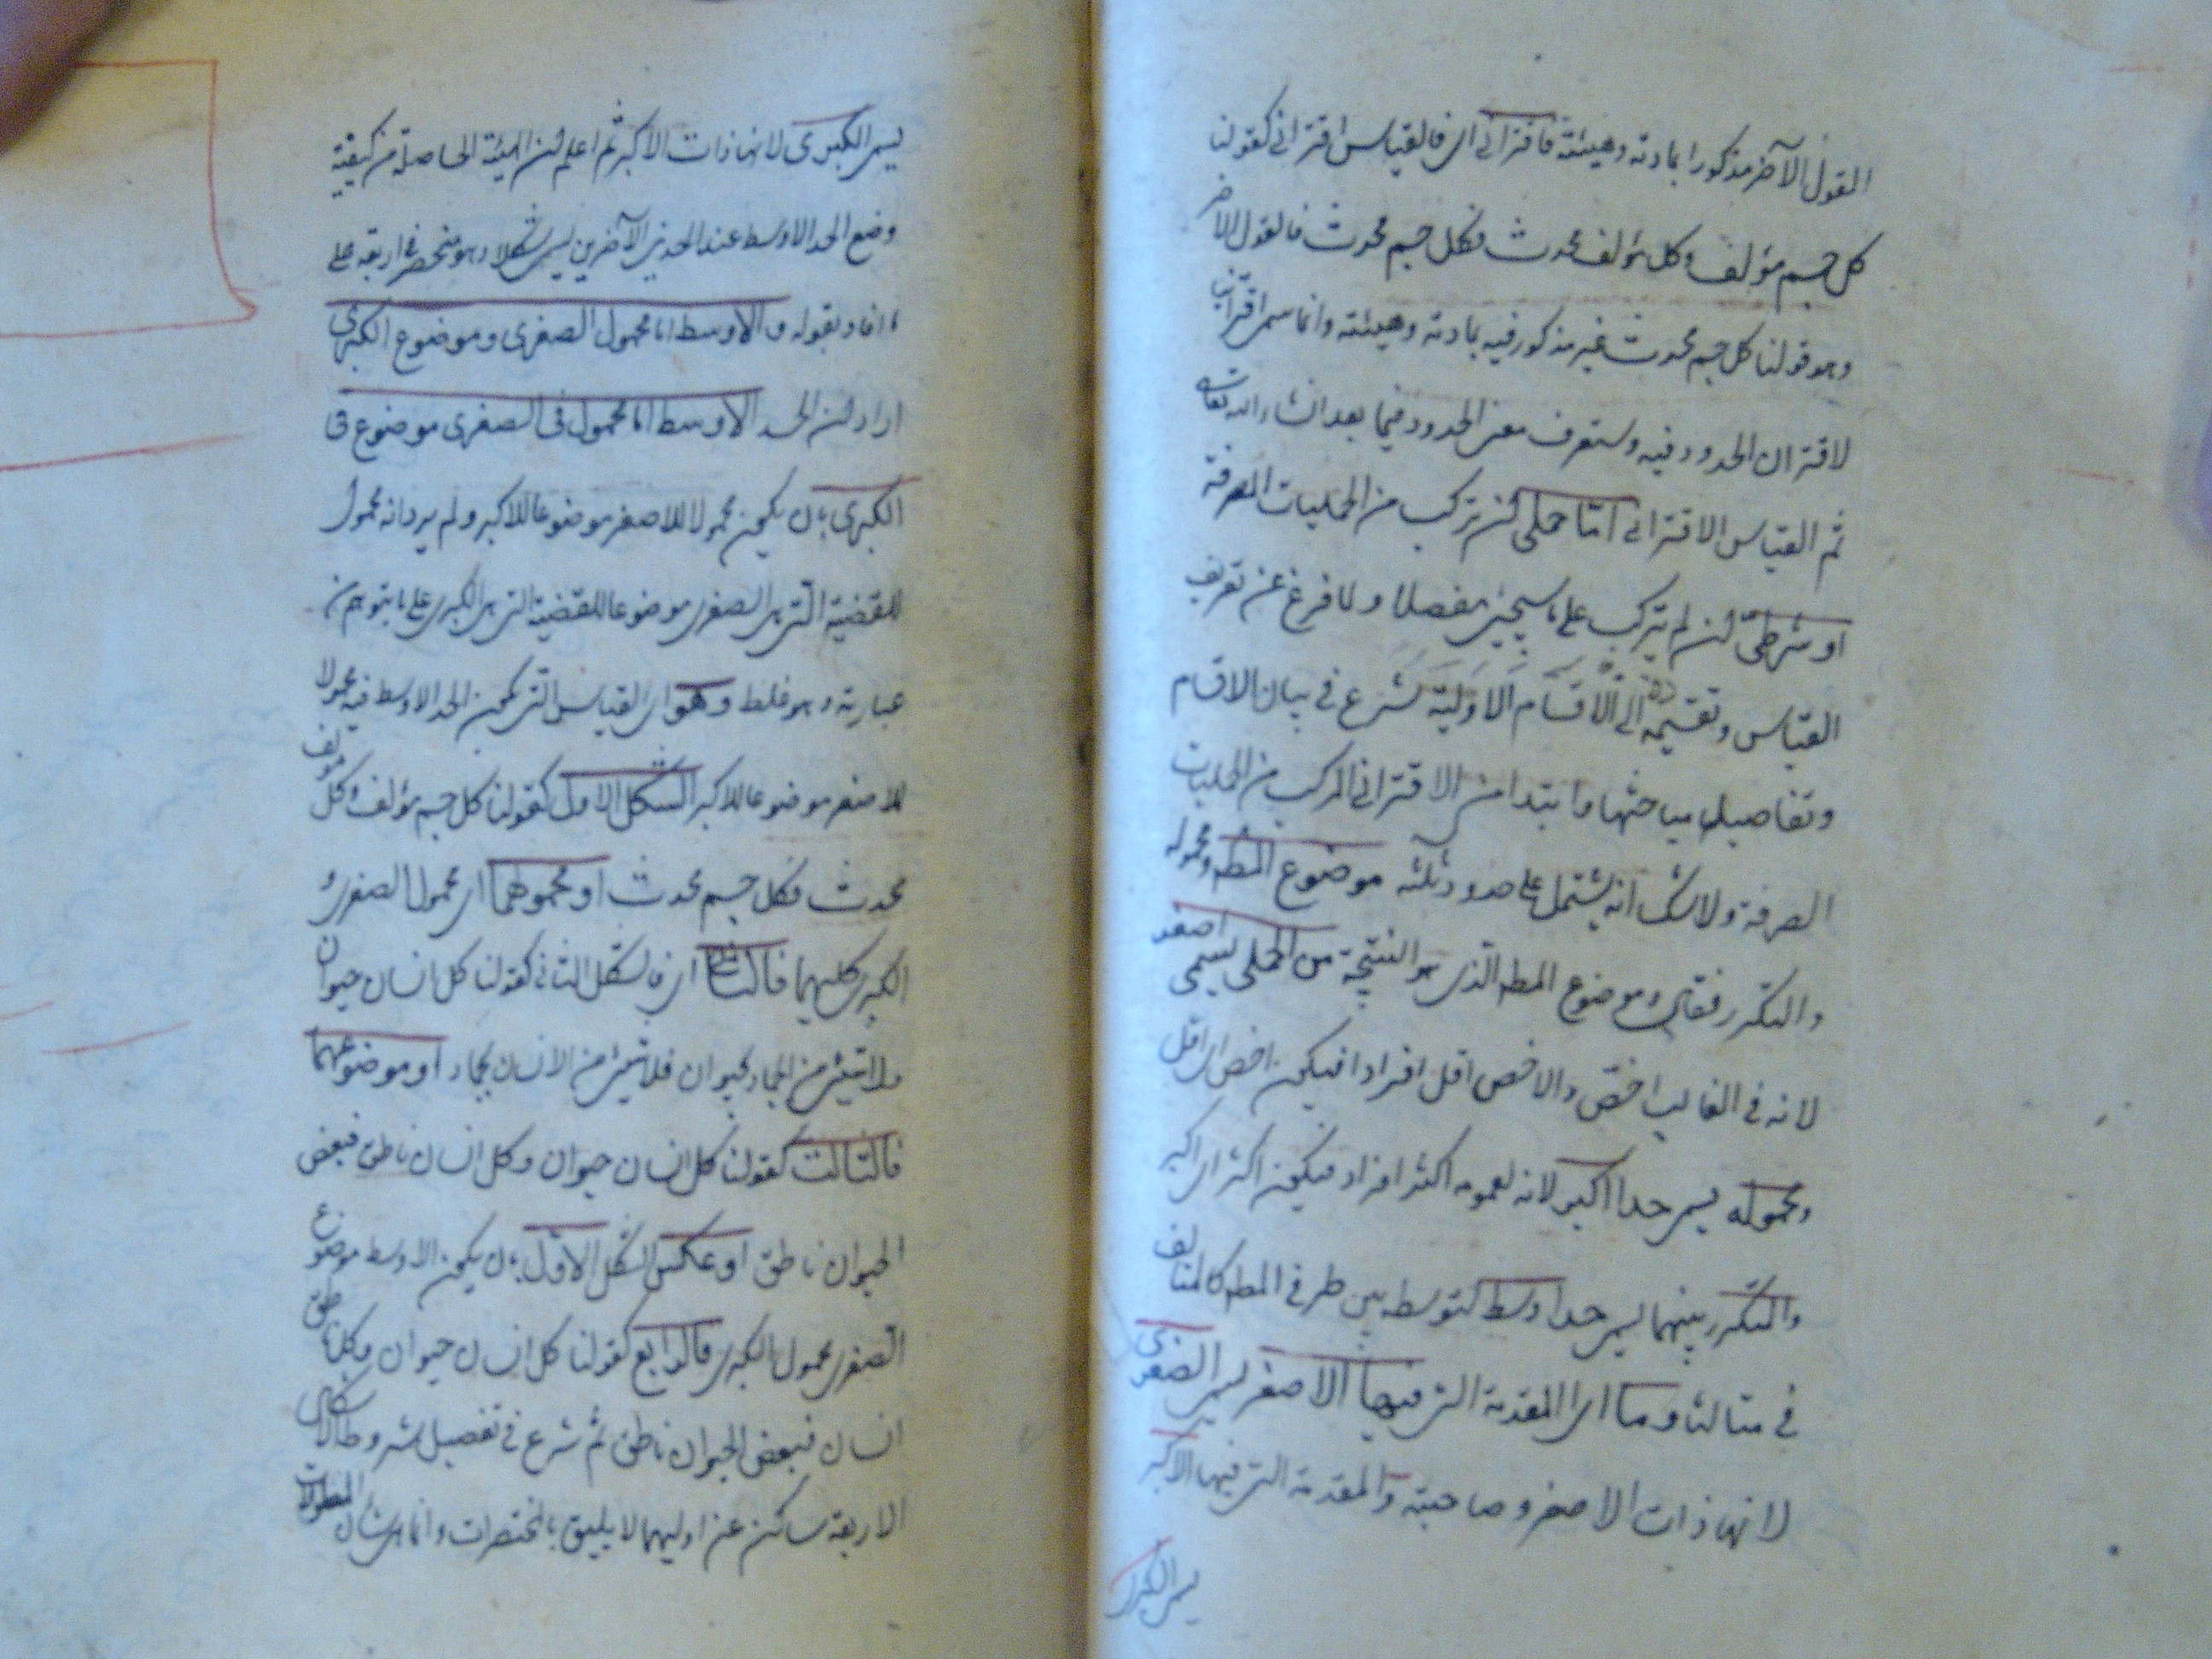 القول الآخر مذكورا بمادته وهيئته فاقترانى اى فالقياس اقترانى كقولنا
كل جسم مؤلف وكل مؤلف محدث فكل جسم محدث فالقول الآخر
وهو قولنا كل جسم محدث غير مذكور فيه بمادته وهيئته وانما سمى اقترانيا
لاقتران الحدود فيه وستعرف معنى الحدود فيما بعد انشاء الله تعالى
ثم القياس الاقترانى اما حملى ان تركب من الحمليات الصرفة
او شرطى ان لم يتركب على ما سيجئ مفصلا ولما فرغ عن تعريف
القياس وتقسيمه الى الاقسام الاولية شرع فى بيان الاقسام
وتفاصيل مباحثها وابتدا من الاقترانى المركب من الحمليات
الصرفة ولا شك انه يشتمل على حدود ثلثة موضوع المط ومحموله
والمتكرر فقال وموضوع المط الذى هو النتيجة من الحملى يسمى اصغر
لانه فى الغالب اخص والاخص اقل افرادا فيكون اخص اى اقل
ومحموله يسمى حدا اكبر لانه لعمومه اكثر افراد فيكون اكثر اى اكبر
والمتكرر بينهما يسمى حدا اوسط لتوسطه بين طرفى المط كالمتالف
فى مثالنا وما اى المقدمة التى فيها الاصغر يسمى الصغرى
لانها ذات الاصغر وصاحبته والمقدمة التى فيها الاكبر
يسمى الكبرى
يسمى الكبرى لانها ذات الاكبر ثم اعلم ان الهيئة الحاصلة من كيفية
وضع الحد الاوسط عند الحدين الآخرين يسمى شكلا وهو منحصر فى اربعة على
ما افاد بقوله والاوسط اما محمول الصغرى وموضوع الكبرى
اراد ان الحد الاوسط اما محمول فى الصغرى موضوع فى
الكبرى بان يكون محمولا للاصغر موضوعا للاكبر ولم يرد انه محمول
للقضية التى هى الصغرى موضوعا للقضية التى هى الكبرى على ما يتوهم من
عبارته وهو غلط وهو اى القياس الذى يكون الحد الاوسط فيه محمولا
للاصغر موضوعا للاكبر الشكل الاول كقولنا كل جسم مؤلف وكل مؤلف
محدث فكل جسم محدث او محمولهما اى محمول الصغرى و
الكبرى كليهما فالثانى اى فالشكل الثانى كقولنا كل انسان حيوان
ولا شئ من الجماد بحيوان فلا شئ من الانسان بجماد او موضوعهما
فالثالث كقولنا كل انسان حيوان وكل انسان ناطق فبعض
الحيوان ناطق او عكس الشكل الاول بان يكون الاوسط موضوع
الصغرى محمول الكبرى فالرابع كقولنا كل انسان حيوان وكل ناطق
انسان فبعض الحيوان ناطق ثم شرع فى تفصيل شروط الاشكال
الاربعة ساكن عن اوليهما لا يليق بالمختصرات وانما هى شان المطولات